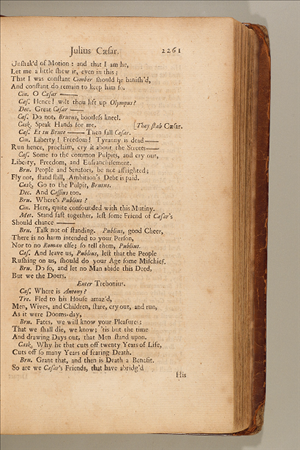 Julius Cæsar. 2261
Unshak'd of Motion: and that I am he,
Let me a little shew it, even in this;
That I was constant Cimber should be banish'd,
And constant do remain to keep him so.
Cin. O Cæsar ———
Cæs. Hence! wilt thou lift up Olympus?
Dec. Great Cæsar ———
Cæs. Do not, Brutus, bootless kneel.
Cask. Speak Hands for me. [They stab Cæsar.
Cæs. Et tu Brute —— Then fall Cæsar.
Cin. Liberty! Freedom! Tyranny is dead ——
Run hence, proclaim, cry it about the Streets ——
Cas. Some to the common Pulpits, and cry out,
Liberty, Freedom, and Enfranchisement.
Bru. People and Senators, be not affrighted;
Fly not, stand still, Ambition's Debt is paid.
Cask. Go to the Pulpit, Brutus.
Dec. And Cassius too.
Bru. Where's Publius?
Cin. Here, quite confounded with this Mutiny.
Met. Stand fast together, lest some Friend of Cæsar's
Should chance ———
Bru. Talk not of standing. Publius, good Cheer,
There is no harm intended to your Person,
Nor to no Roman else; so tell them, Publius.
Cas. And leave us, Publius, lest that the People
Rushing on us, should do your Age some Mischief.
Bru. Do so, and let no Man abide this Deed,
But we the Doers.
Enter Trebonius.
Cas. Where is Antony?
Tre. Fled to his House amaz'd,
Men, Wives, and Children, stare, cry out, and run,
As it were Dooms-day.
Bru. Fates, we will know your Pleasures;
That we shall die, we know; 'tis but the time
And drawing Days out, that Men stand upon.
Cask. Why he that cuts off twenty Years of Life,
Cuts off so many Years of fearing Death.
Bru. Grant that, and then is Death a Benefit.
So are we Cæsar's Friends, that have abridg'd
His